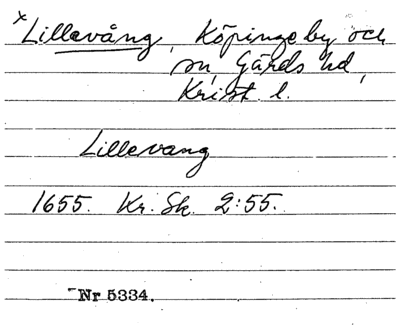 x Lillevång, Köpinge by och
sn, Gärds hd,
Krist. l.
Lillevang
1655. Kr. Sk. 2:55.
Nr 5334.